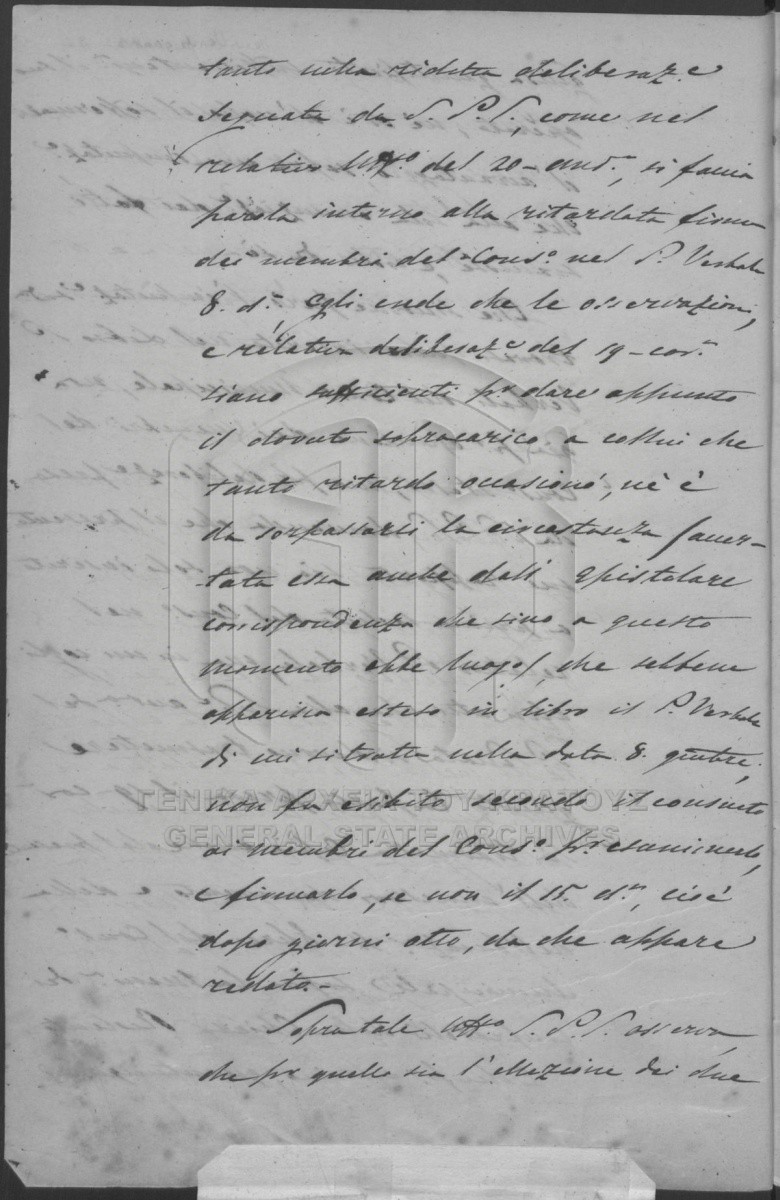 tanto nella ridetta deliberaz.e
segnata da S. P. S., come nel
relativo Uff.o del 20 - and.e, si faccia
parola intorno alla ritardata firma
dei membri del Cons.o nel P. Verbale
8. d.o, Egli crede che le osservazioni,
e relativa deliberaz.e del 19 - cor.e
siano sufficienti p.r dare appunto
il dovuto sopracarico a collui che
tanto ritardo occasionò, nè è
da sorpassarsi la circostanza (accer-
tata essa anche dall' epistolare
corrispondenza che sino a questo
momento ebbe luogo), che sebbene
apparisca esteso in libro il P. Verbale
di cui si tratta nella data 8.
non fu esibito secondo il consueto
ai membri del Cons.o p.r esaminarlo,
e firmarlo, se non il 15. d.o, cioè
dopo giorni otto, da che appare
redatto. -
Sopra tale Uff.o S. P. S. osserva,
che p.r quello sia l'ellezione dei due
ΓΕΝΙΚΑ ΑΡΧΕΙΑ ΤΟΥ ΚΡΑΤΟΥΣ
GENERAL STATE ARCHIVES